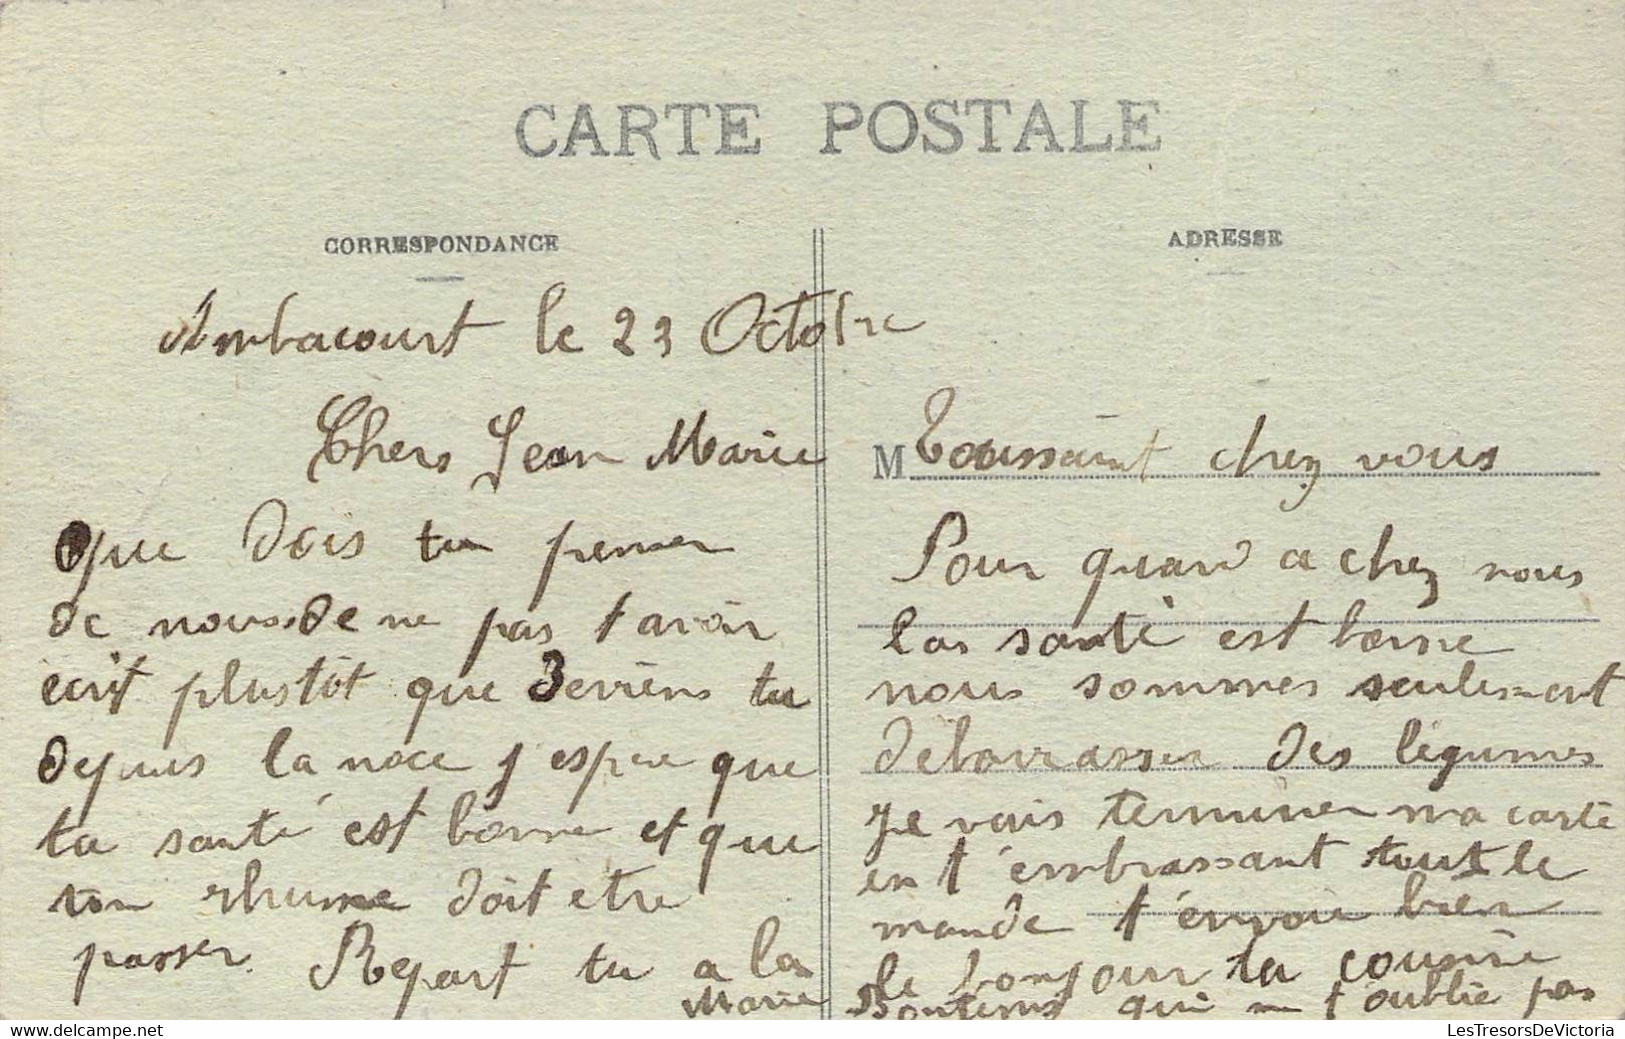 CARTE POSTALE
CORRESPONDANCE
Ambacourt le 23 Octobre
Chers Jean Marie
que dois tu penser
de nous de ne pas t avoir
écrit plustôt que deviens tu
depuis la noce j espere que
ta santé est bonne et que
ton rhume doit etre
passer. Repart tu a la
Marie
ADRESSE
M Toussaint chez vous
Pour quand a chez nous
la santé est bonne
nous sommes seulement
debarrasser des légumes
Je vais terminer ma carte
en t'embrassant tout le
monde t'envoie bien
le bonjour ta cousine
qui ne t oublie pas
LesTresorsDeVictoria